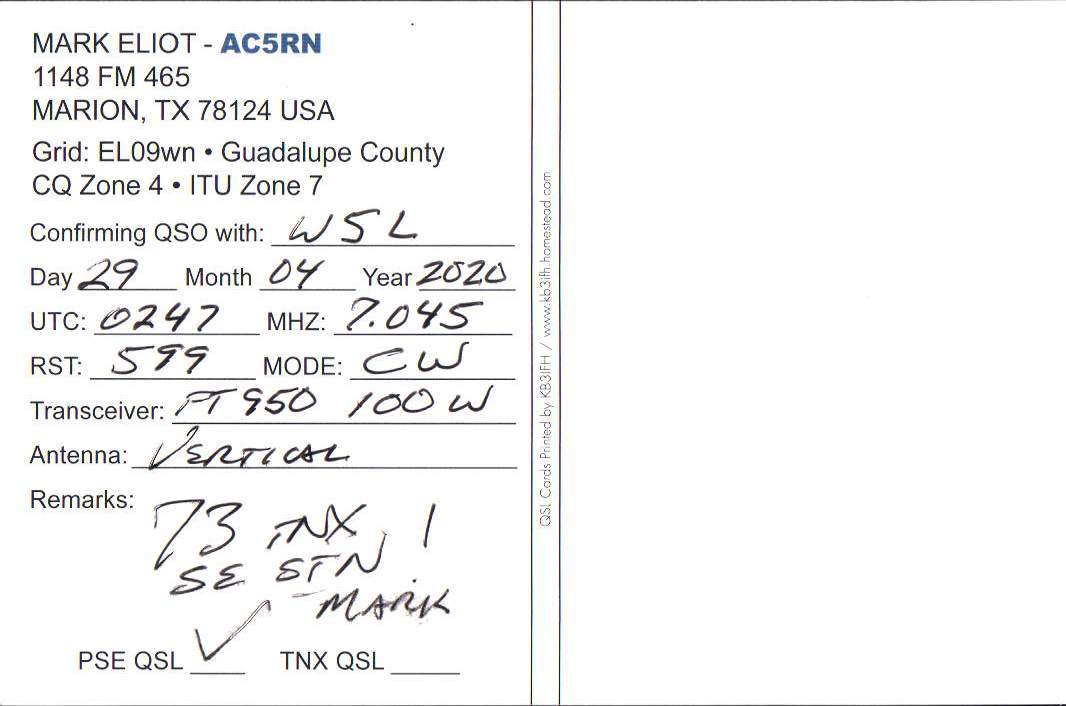 MARK ELIOT - AC5RN
1148 FM 465
MARION, TX 78124 USA
Grid: EL09wn • Guadalupe County
CQ Zone 4 • ITU Zone 7
Confirming QSO with: W5L
Day 29 Month 04 Year 2020
UTC: 0247 MHZ: 7.045
RST: 599 MODE: CW
Transceiver: FT950 100W
Antenna: VERTICAL
Remarks:
73 TNX
SE STN !
MARK
PSE QSL ✓ TNX QSL
QSL Cards Printed by KB3IFH / www.kb3ifh.homestead.com